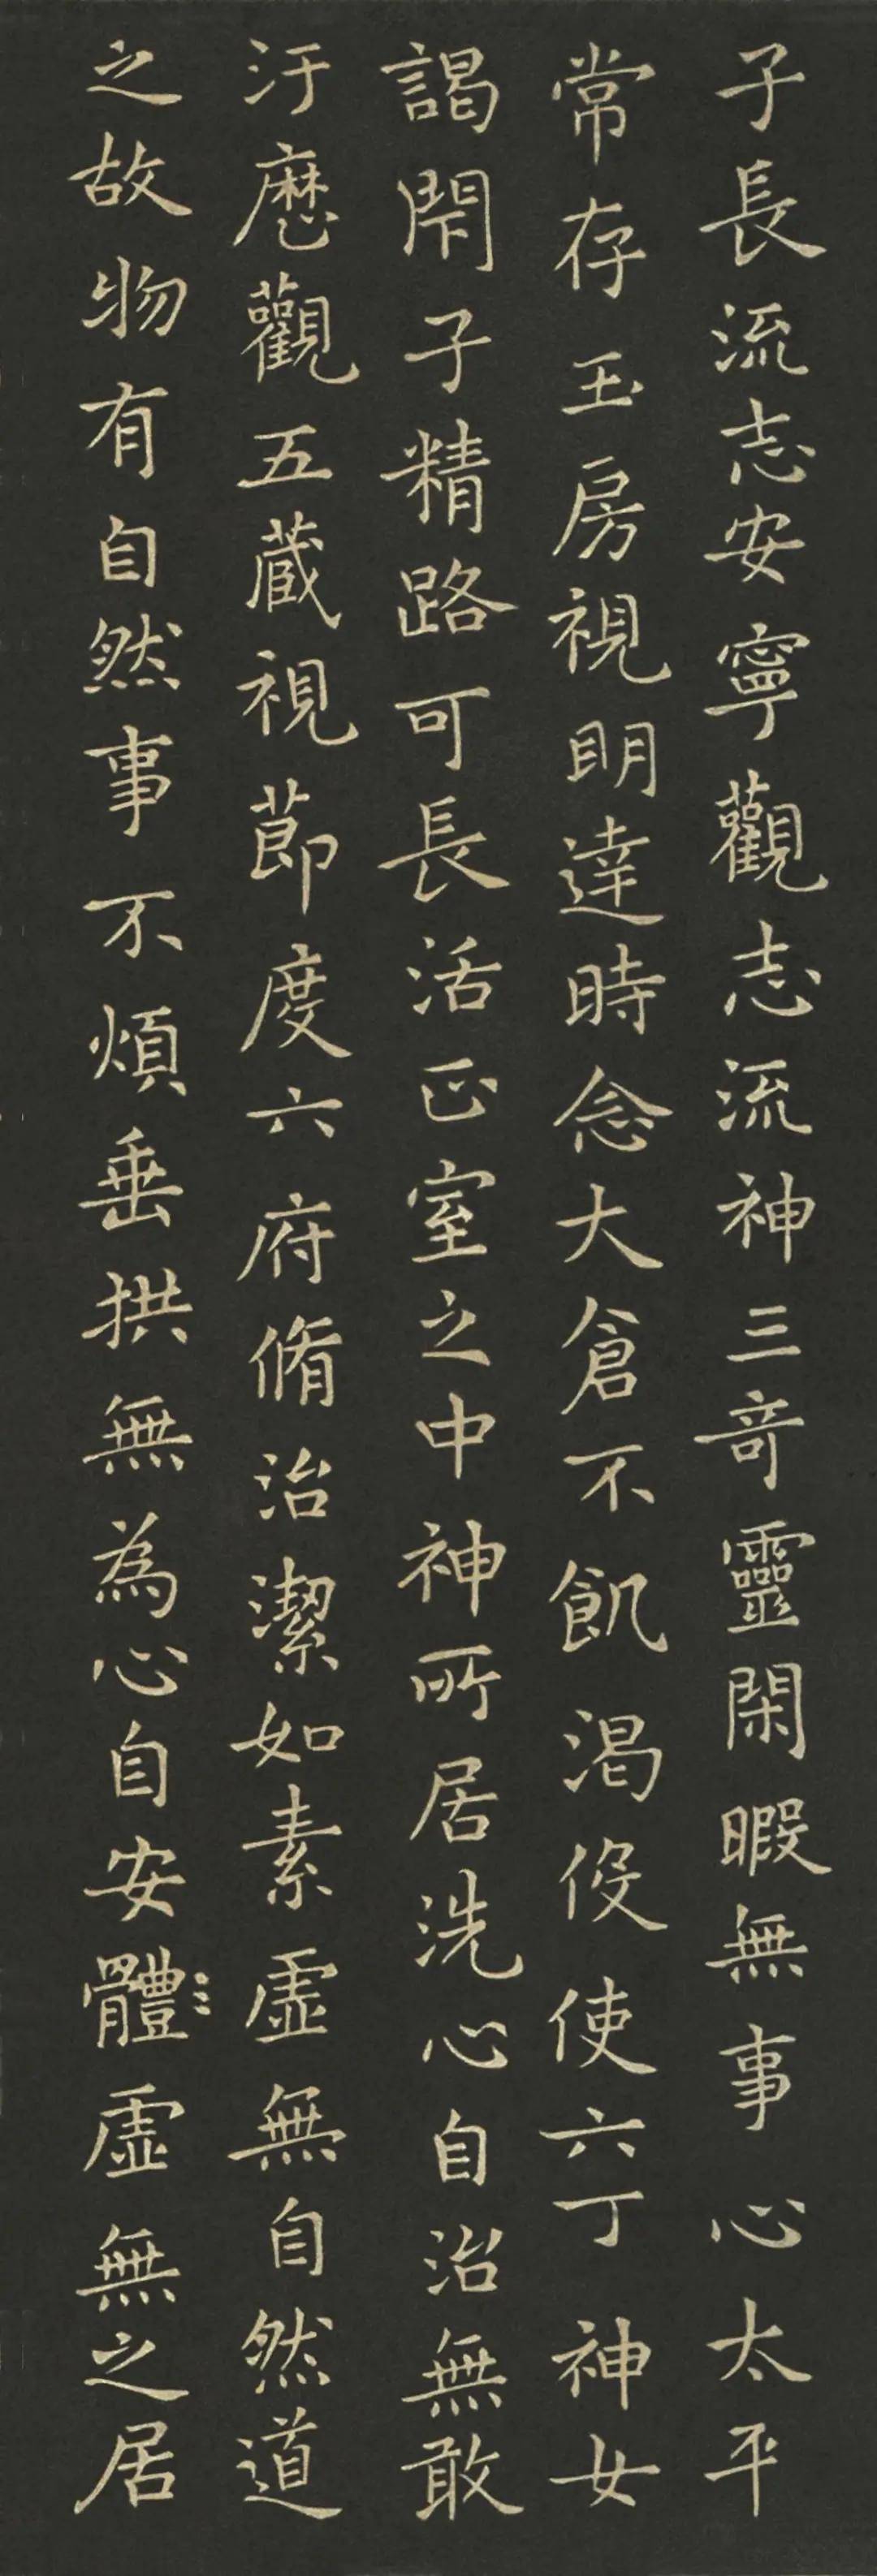 子長流志安寧觀志流神三奇靈閑暇無事心太平
常存玉房視明達時念大倉不飢渴役使六丁神女
謁閇子精路可長活正室之中神所居洗心自治無敢
汙歷觀五藏視節度六府脩治潔如素虛無自然道
之故物有自然事不煩垂拱無為心自安體虛無之居